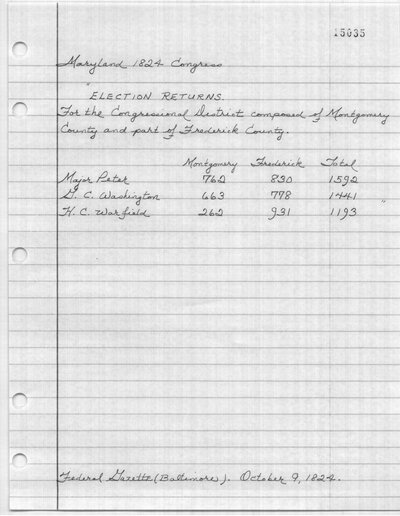 15035
Maryland 1824 Congress
"ELECTION RETURNS.
For the Congressional District composed of Montgomery
County and part of Frederick County.
Montgomery Frederick Total
Major Peter 762 830 1592
G. C. Washington 663 778 1441
H. C. Warfield 262 931 1193 "
Federal Gazette (Baltimore). October 9, 1824.